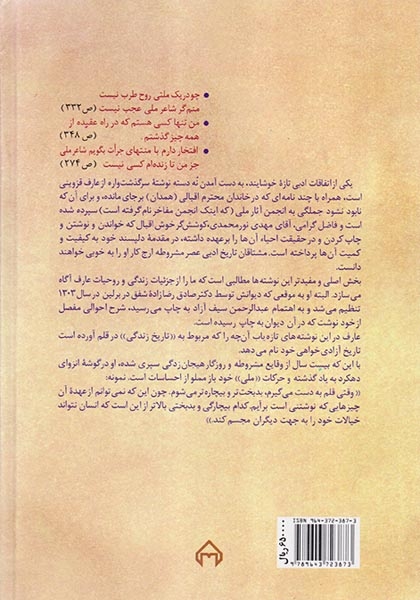 چو در یک ملتی روح طرب نیست
منم گر شاعر ملی عجب نیست (ص ۳۳۲)
من تنها کسی هستم که در راه عقیده از
همه چیز گذشتم. (ص ۳۴۸)
افتخار دارم با منتهای جرأت بگویم شاعر ملی
جز من تا زنده‌ام کسی نیست (ص ۲۷۴)
یکی از اتفاقات ادبی تازهٔ خوشایند، به دست آمدن نُه دسته نوشتهٔ سرگذشت‌واره از عارف قزوینی
است، همراه با چند نامه‌ای که در خاندان محترم اقبالی (همدان) برجای مانده، و برای آن که
نابود نشود جملگی به انجمن آثار ملی (که اینک انجمن مفاخر نام گرفته است) سپرده شده
است و فاضل گرامی، آقای مهدی نورمحمدی، کوشش‌گر خوش‌اقبال که خواندن و نوشتن و
چاپ کردن و در حقیقت احیاء آن‌ها را برعهده داشته، در مقدمهٔ دلپسند خود به کیفیت و
کمیت آن‌ها پرداخته است. مشتاقان تاریخ ادبی عصر مشروطه ارج کار او را به خوبی خواهند
دانست.
بخش اصلی و مفیدتر این نوشته‌ها مطالبی است که ما را از جزئیات زندگی و روحیات عارف آگاه
می‌سازد. البته او به موقعی که دیوانش توسط دکتر صادق رضازادهٔ شفق در برلین در سال ۱۳۰۳
تنظیم می‌شد و به اهتمام عبدالرحمن سیف آزاد به چاپ می‌رسید، شرح احوالی مفصل
از خود نوشت که در آن دیوان به چاپ رسیده است.
عارف در این نوشته‌های تازه‌یاب آن‌چه را که مربوط به «تاریخ زندگی» در قلم آورده است
تاریخ آزادی خواهی خود نام می‌دهد.
با این که بیست سال از وقایع مشروطه و روزگار هیجان‌زدگی سپری شده، او در گوشهٔ انزوای
دهکرد به یاد گذشته و حرکات «ملی» خود باز مملو از احساسات است. نمونه:
«وقتی قلم به دست می‌گیرم، بدبخت‌تر و بیچاره‌تر می‌شوم. چون این که نمی‌توانم از عهدهٔ آن
چیزهایی که نوشتنی است برآیم. کدام بیچارگی و بدبختی بالاتر از این است که انسان نتواند
خیالات خود را به جهت دیگران مجسم کند.»
ISBN 964-372-387-3
9 789643 723873
۶۵۰۰۰ ریال